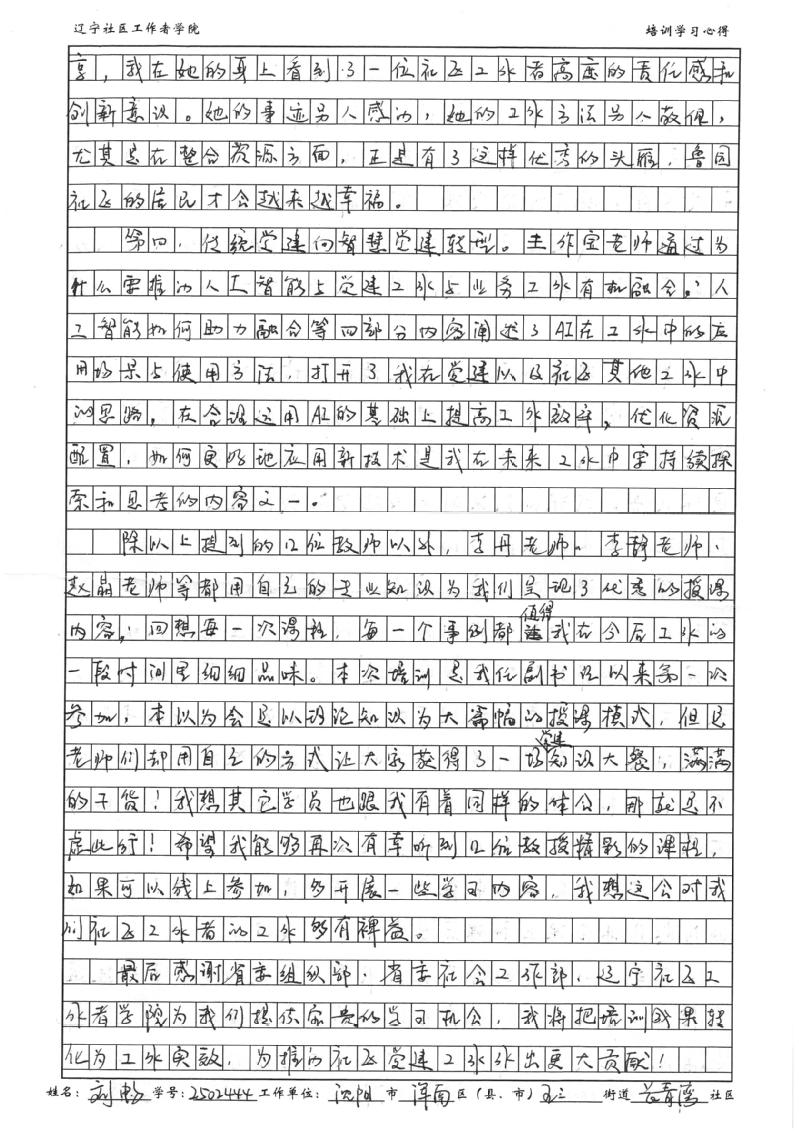 辽宁社区工作者学院 培训学习心得
享，我在她的身上看到了一位社区工作者高度的责任感和
创新意识。她的事迹另人感动，她的工作方法另人敬佩，
尤其是在整合资源方面，正是有了这样优秀的头雁，鲁园
社区的居民才会越来越幸福。
第四，传统党建向智慧党建转型。王作宝老师通过为
什么要推动人工智能与党建工作与业务工作有机融合、人
工智能如何助力融合等四部分内容阐述了AI在工作中的应
用场景与使用方法，打开了我在党建以及社区其他工作中
的思路，在合理运用AI的基础上提高工作效率，优化资源
配置，如何更好地应用新技术是我在未来工作中字持续探
索和思考的内容之一。
除以上提到的几位教师以外，李丹老师、李静老师、
赵晶老师等都用自己的专业知识为我们呈现了优秀的授课
内容，回想每一次课程，每一个事例都值得我在今后工作的
一段时间里细细品味。本次培训是我任副书记以来第一次
参加，本以为会是以理论知识为大篇幅的授课模式，但是
老师们却用自己的方式让大家获得了一场党建知识大餐，满满
的干货！我想其它学员也跟我有着同样的体会，那就是不
虚此行！希望我能够再次有幸听到几位教授精彩的课程，
如果可以线上参加，多开展一些学习内容，我想这会对我
们社区工作者的工作够有裨益。
最后感谢省委组织部、省委社会工作部、辽宁社区工
作者学院为我们提供宝贵的学习机会，我将把培训成果转
化为工作实效，为推动社区党建工作作出更大贡献！
姓名：刘畅 学号：2502444 工作单位：沈阳 市 浑南 区（县、市） 五三 街道 长青湾 社区